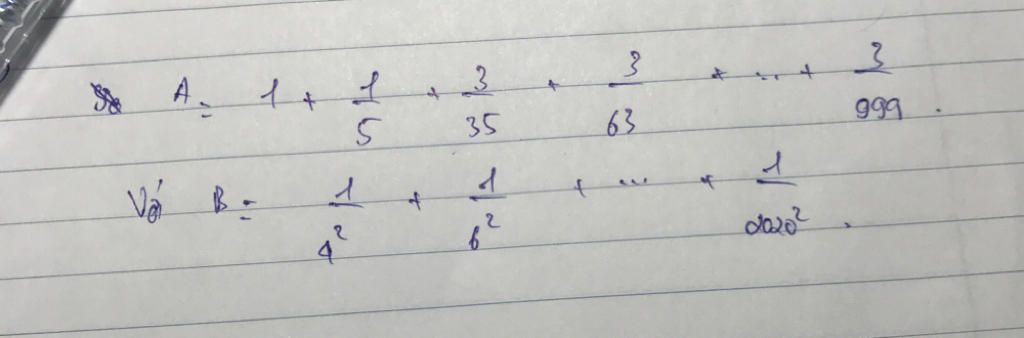 A = 1 + 1/5 + 3/35 + 3/63 + ... + 3/999 .
Với B = 1/4² + 1/6² + ... + 1/2020² .